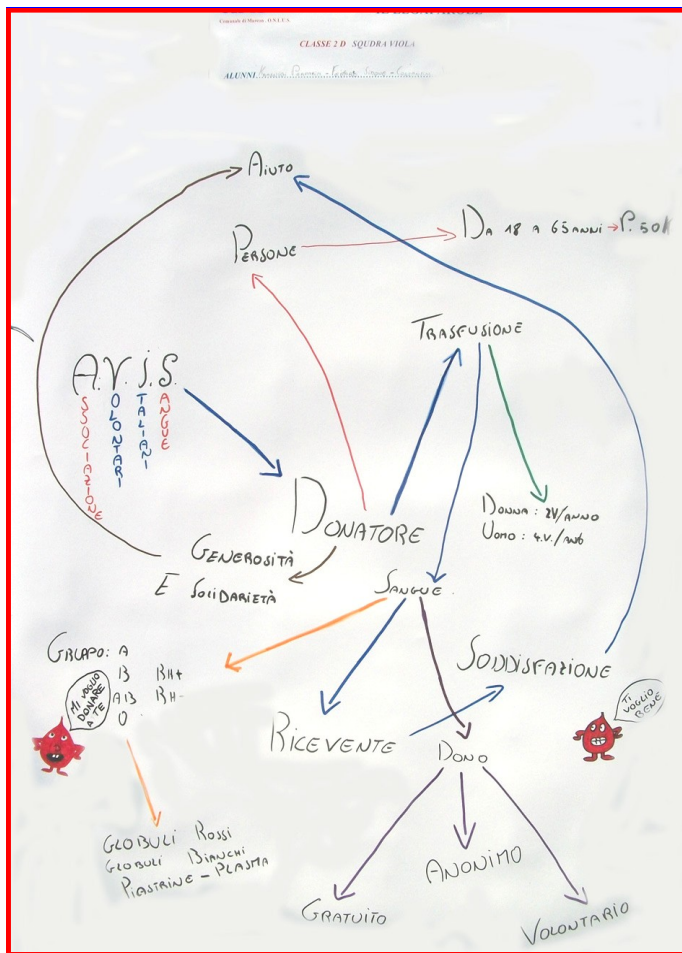 Comunale di O.N.L.U.S
CLASSE 2 D SQUDRA VIOLA
ALUNNI
AIUTO
PERSONE
DA 18 A 65 ANNI → P. 50K
TRASFUSIONE
A.V.I.S.
ASSOCIAZIONE
VOLONTARI
ITALIANI
SANGUE
DONNA : 2V/ANNO
UOMO : 4.V./
DONATORE
GENEROSITÀ
E SOLIDARIETÀ
SANGUE
GRUPPO: A
B RH+
AB RH-
O
MI VOGLIO
DONARE
A TE
SODDISFAZIONE
TI
VOGLIO
BENE
RICEVENTE
DONO
GLOBULI ROSSI
GLOBULI BIANCHI
PIASTRINE - PLASMA
ANONIMO
GRATUITO
VOLONTARIO